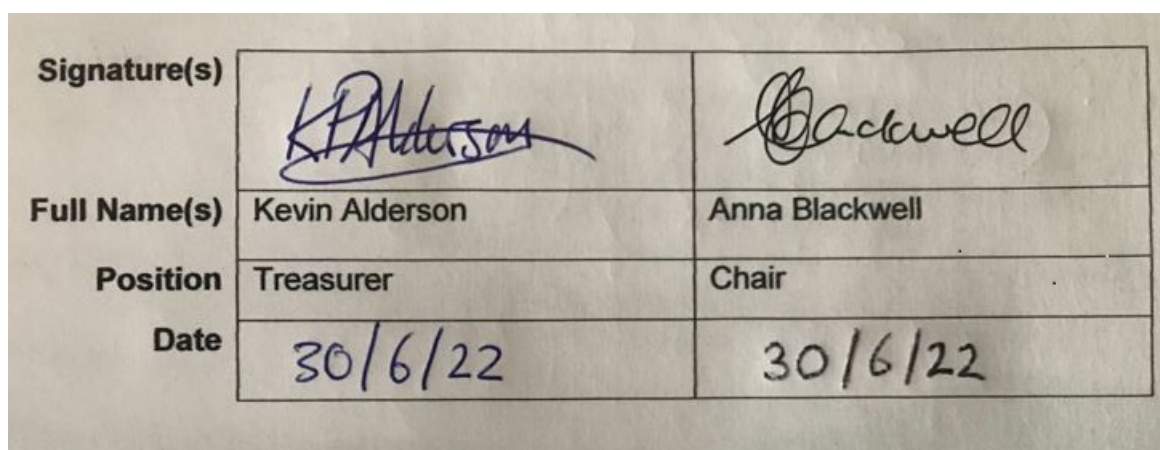 Signature(s) KPAlderson Blackwell
Full Name(s) Kevin Alderson Anna Blackwell
Position Treasurer Chair
Date 30/6/22 30/6/22